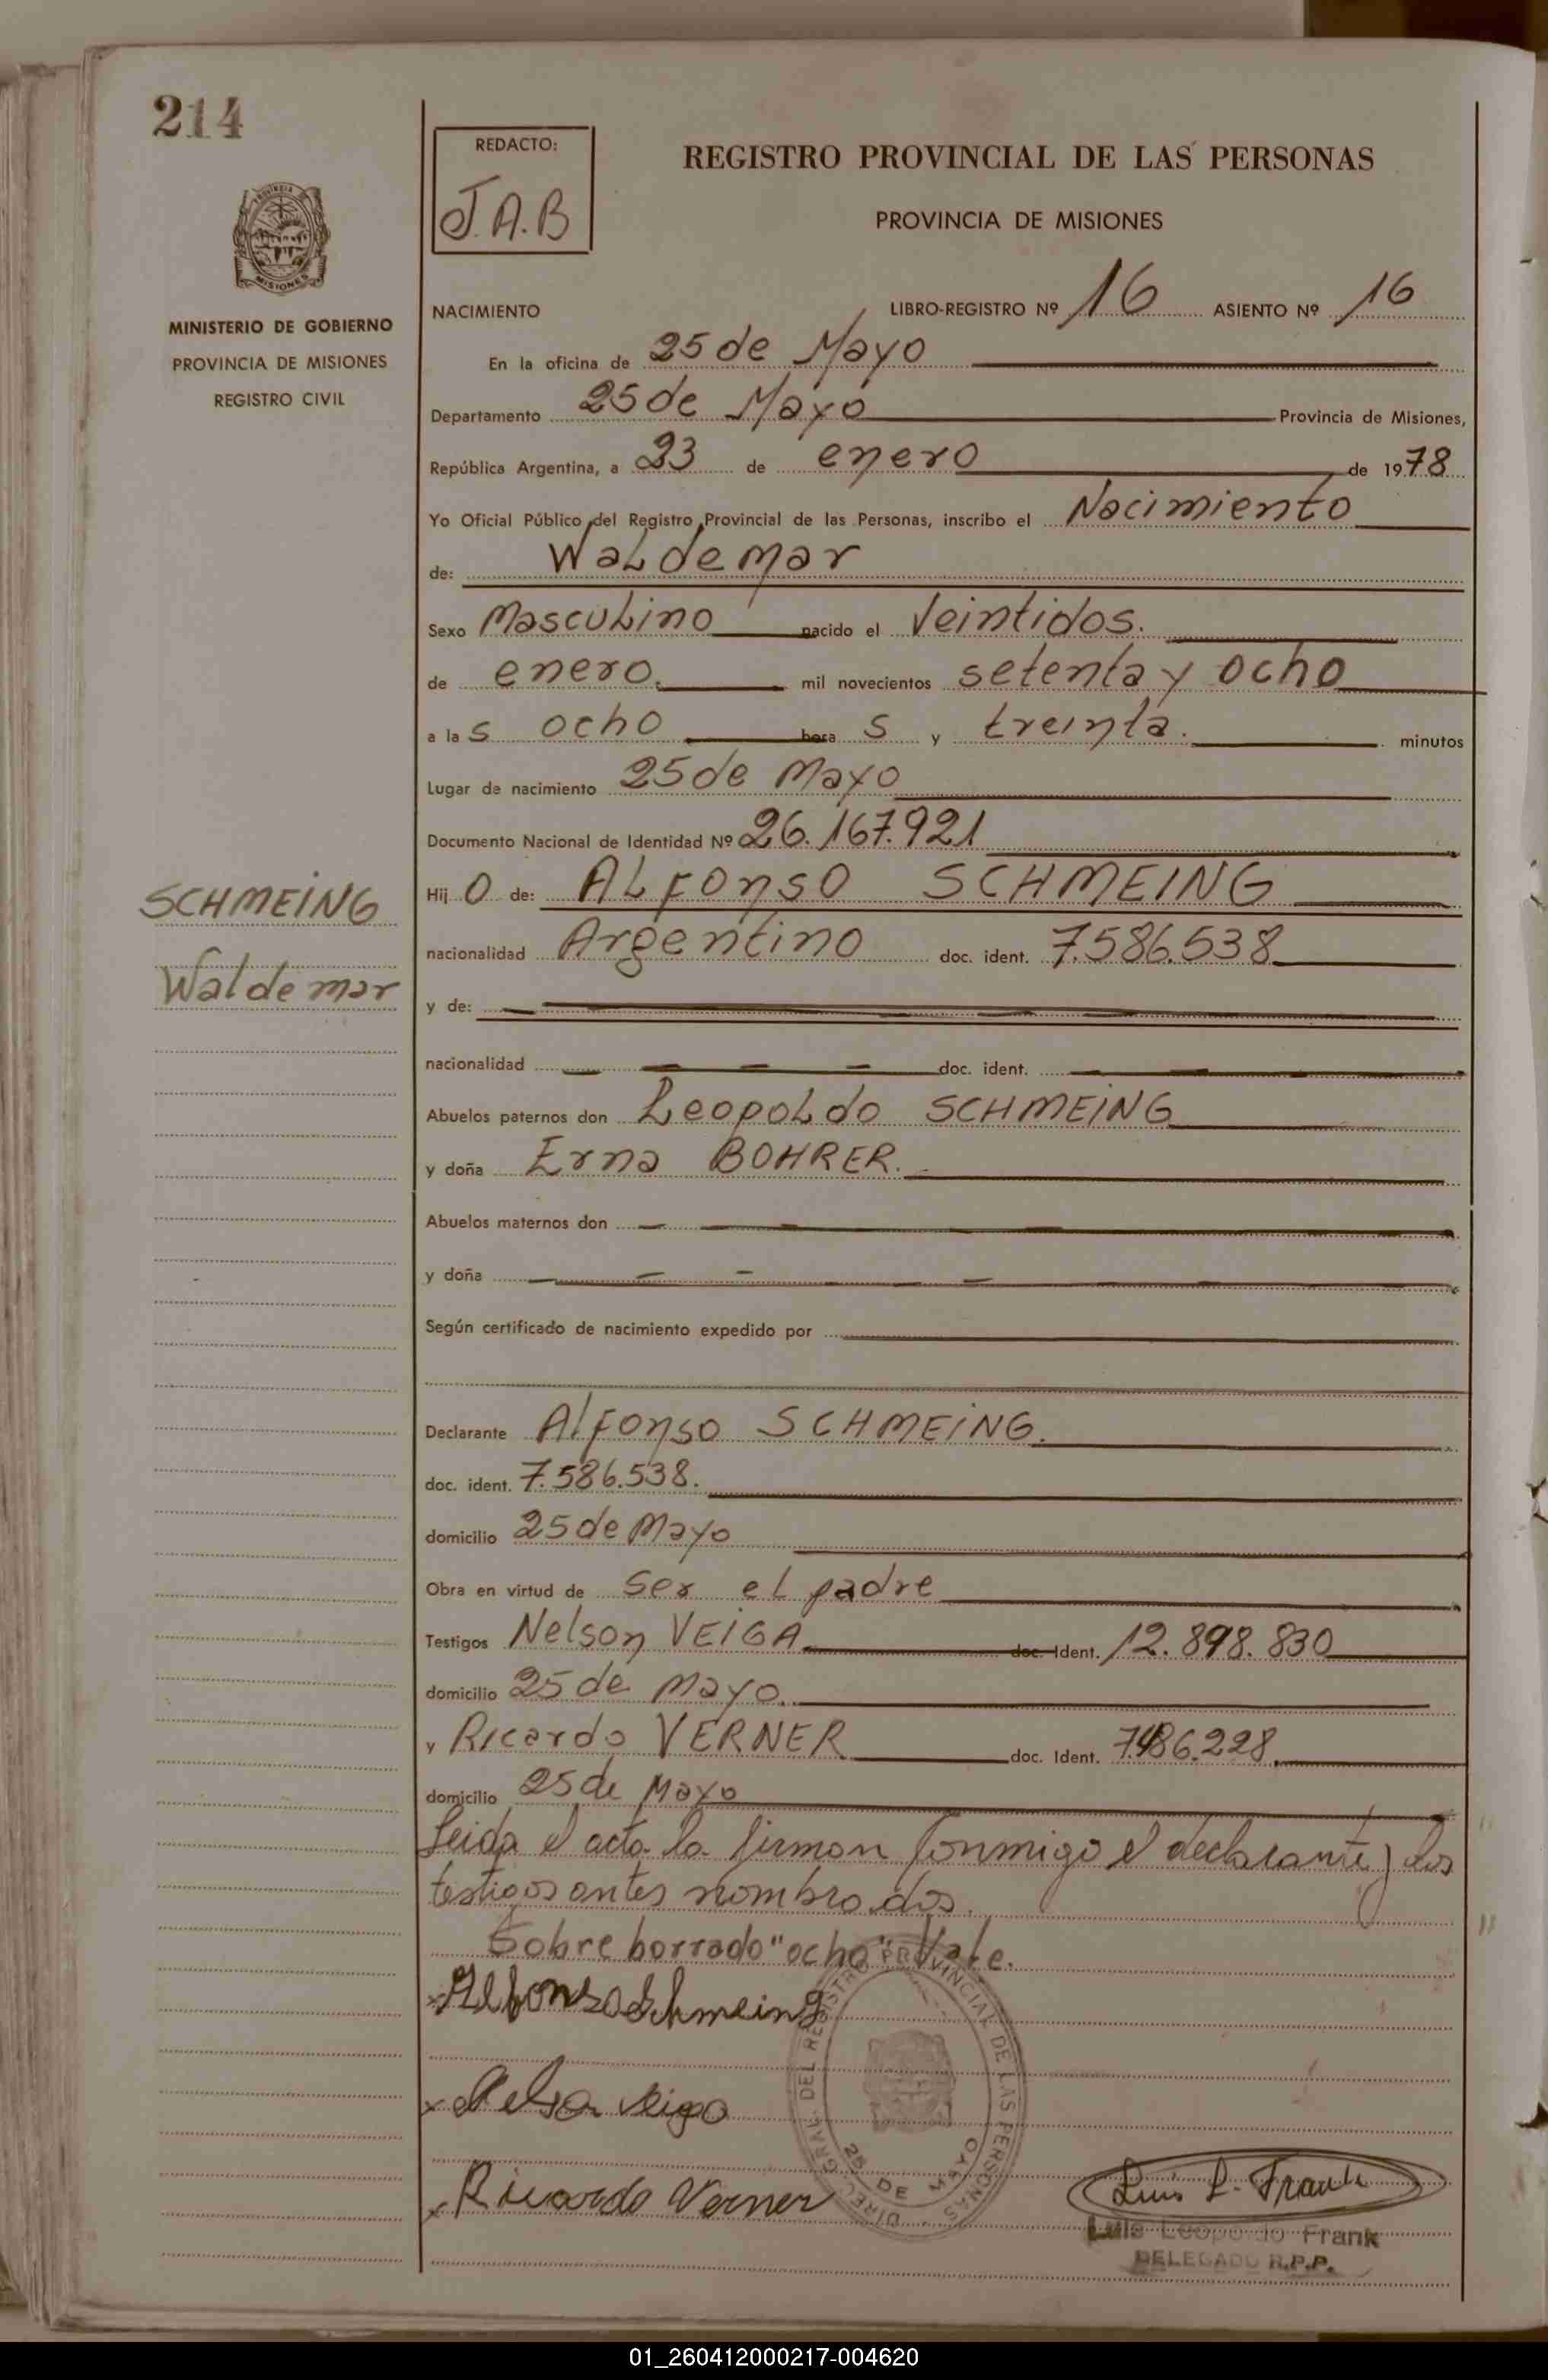 214
REDACTO:
J.A.B
REGISTRO PROVINCIAL DE LAS PERSONAS
PROVINCIA DE MISIONES
MISIONES
MINISTERIO DE GOBIERNO
PROVINCIA DE MISIONES
REGISTRO CIVIL
NACIMIENTO LIBRO-REGISTRO Nº 16 ASIENTO Nº 16
En la oficina de 25 de Mayo
Departamento 25 de Mayo Provincia de Misiones,
República Argentina, a 23 de enero de 1978
Yo Oficial Público del Registro Provincial de las Personas, inscribo el Nacimiento
de: Waldemar
Sexo Masculino nacido el Veintidos.
de enero. mil novecientos setenta y ocho
a las ocho hora s y treinta. minutos
Lugar de nacimiento 25 de Mayo
Documento Nacional de Identidad Nº 26.167.921
Hij o de: ALFONSO SCHMEING
SCHMEING
Waldemar
nacionalidad Argentino doc. ident. 7.586.538
y de:
nacionalidad doc. ident.
Abuelos paternos don Leopoldo SCHMEING
y doña Erna BOHRER.
Abuelos maternos don
y doña
Según certificado de nacimiento expedido por
Declarante Alfonso SCHMEING.
doc. ident. 7.586.538.
domicilio 25 de Mayo
Obra en virtud de ser el padre
Testigos Nelson VEIGA doc. Ident. 12.898.830
domicilio 25 de Mayo.
y Ricardo VERNER doc. Ident. 7.486.228.
domicilio 25 de Mayo
Leida el acta la firman conmigo el declarante y los
testigos antes nombrados.
Sobre borrado "ocho" Vale.
Alfonso Schmeing
Nelson Veiga
Ricardo Verner
DIREC. GRAL. DEL REGISTRO PROVINCIAL DE LAS PERSONAS
25 DE MAYO
Luis L. Frank
Luis Leopoldo Frank
DELEGADO R.P.P.
01_260412000217-004620